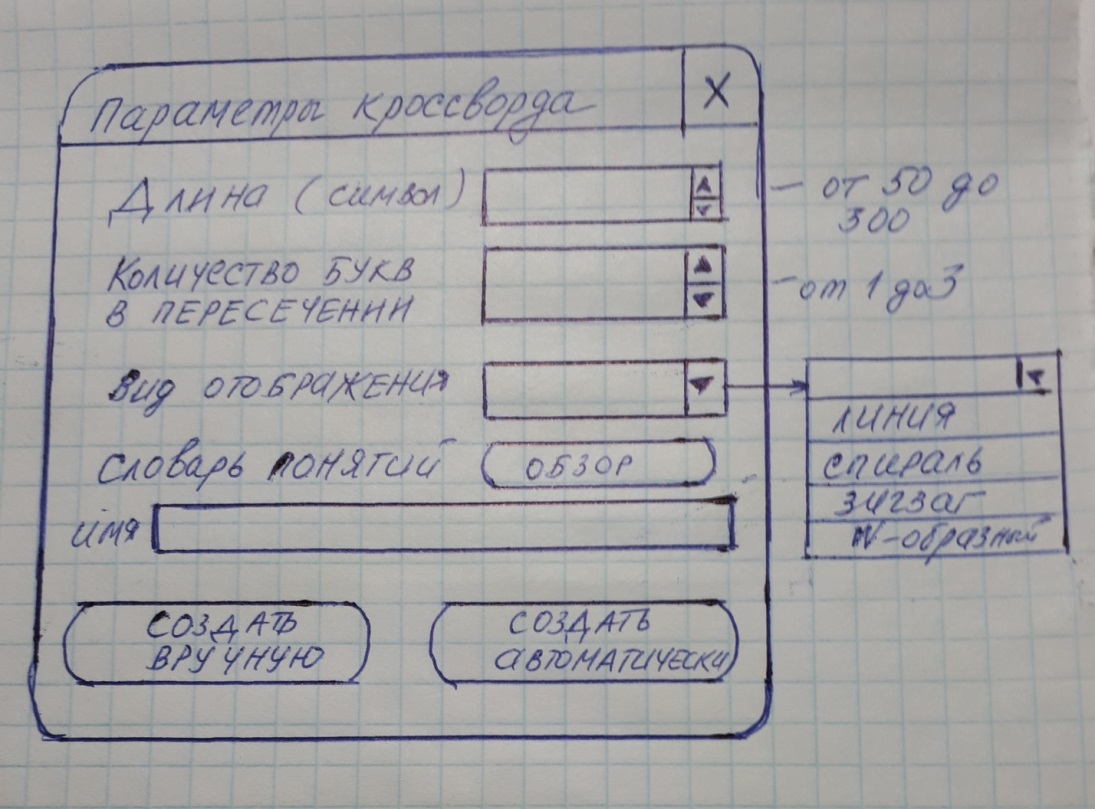 Параметры кроссворда X
Длина (символ) - от 50 до
300
Количество букв
в пересечении - от 1 до 3
Вид отображения
линия
спираль
зигзаг
N-образный
Словарь понятий обзор
имя
создать
вручную
создать
автоматически